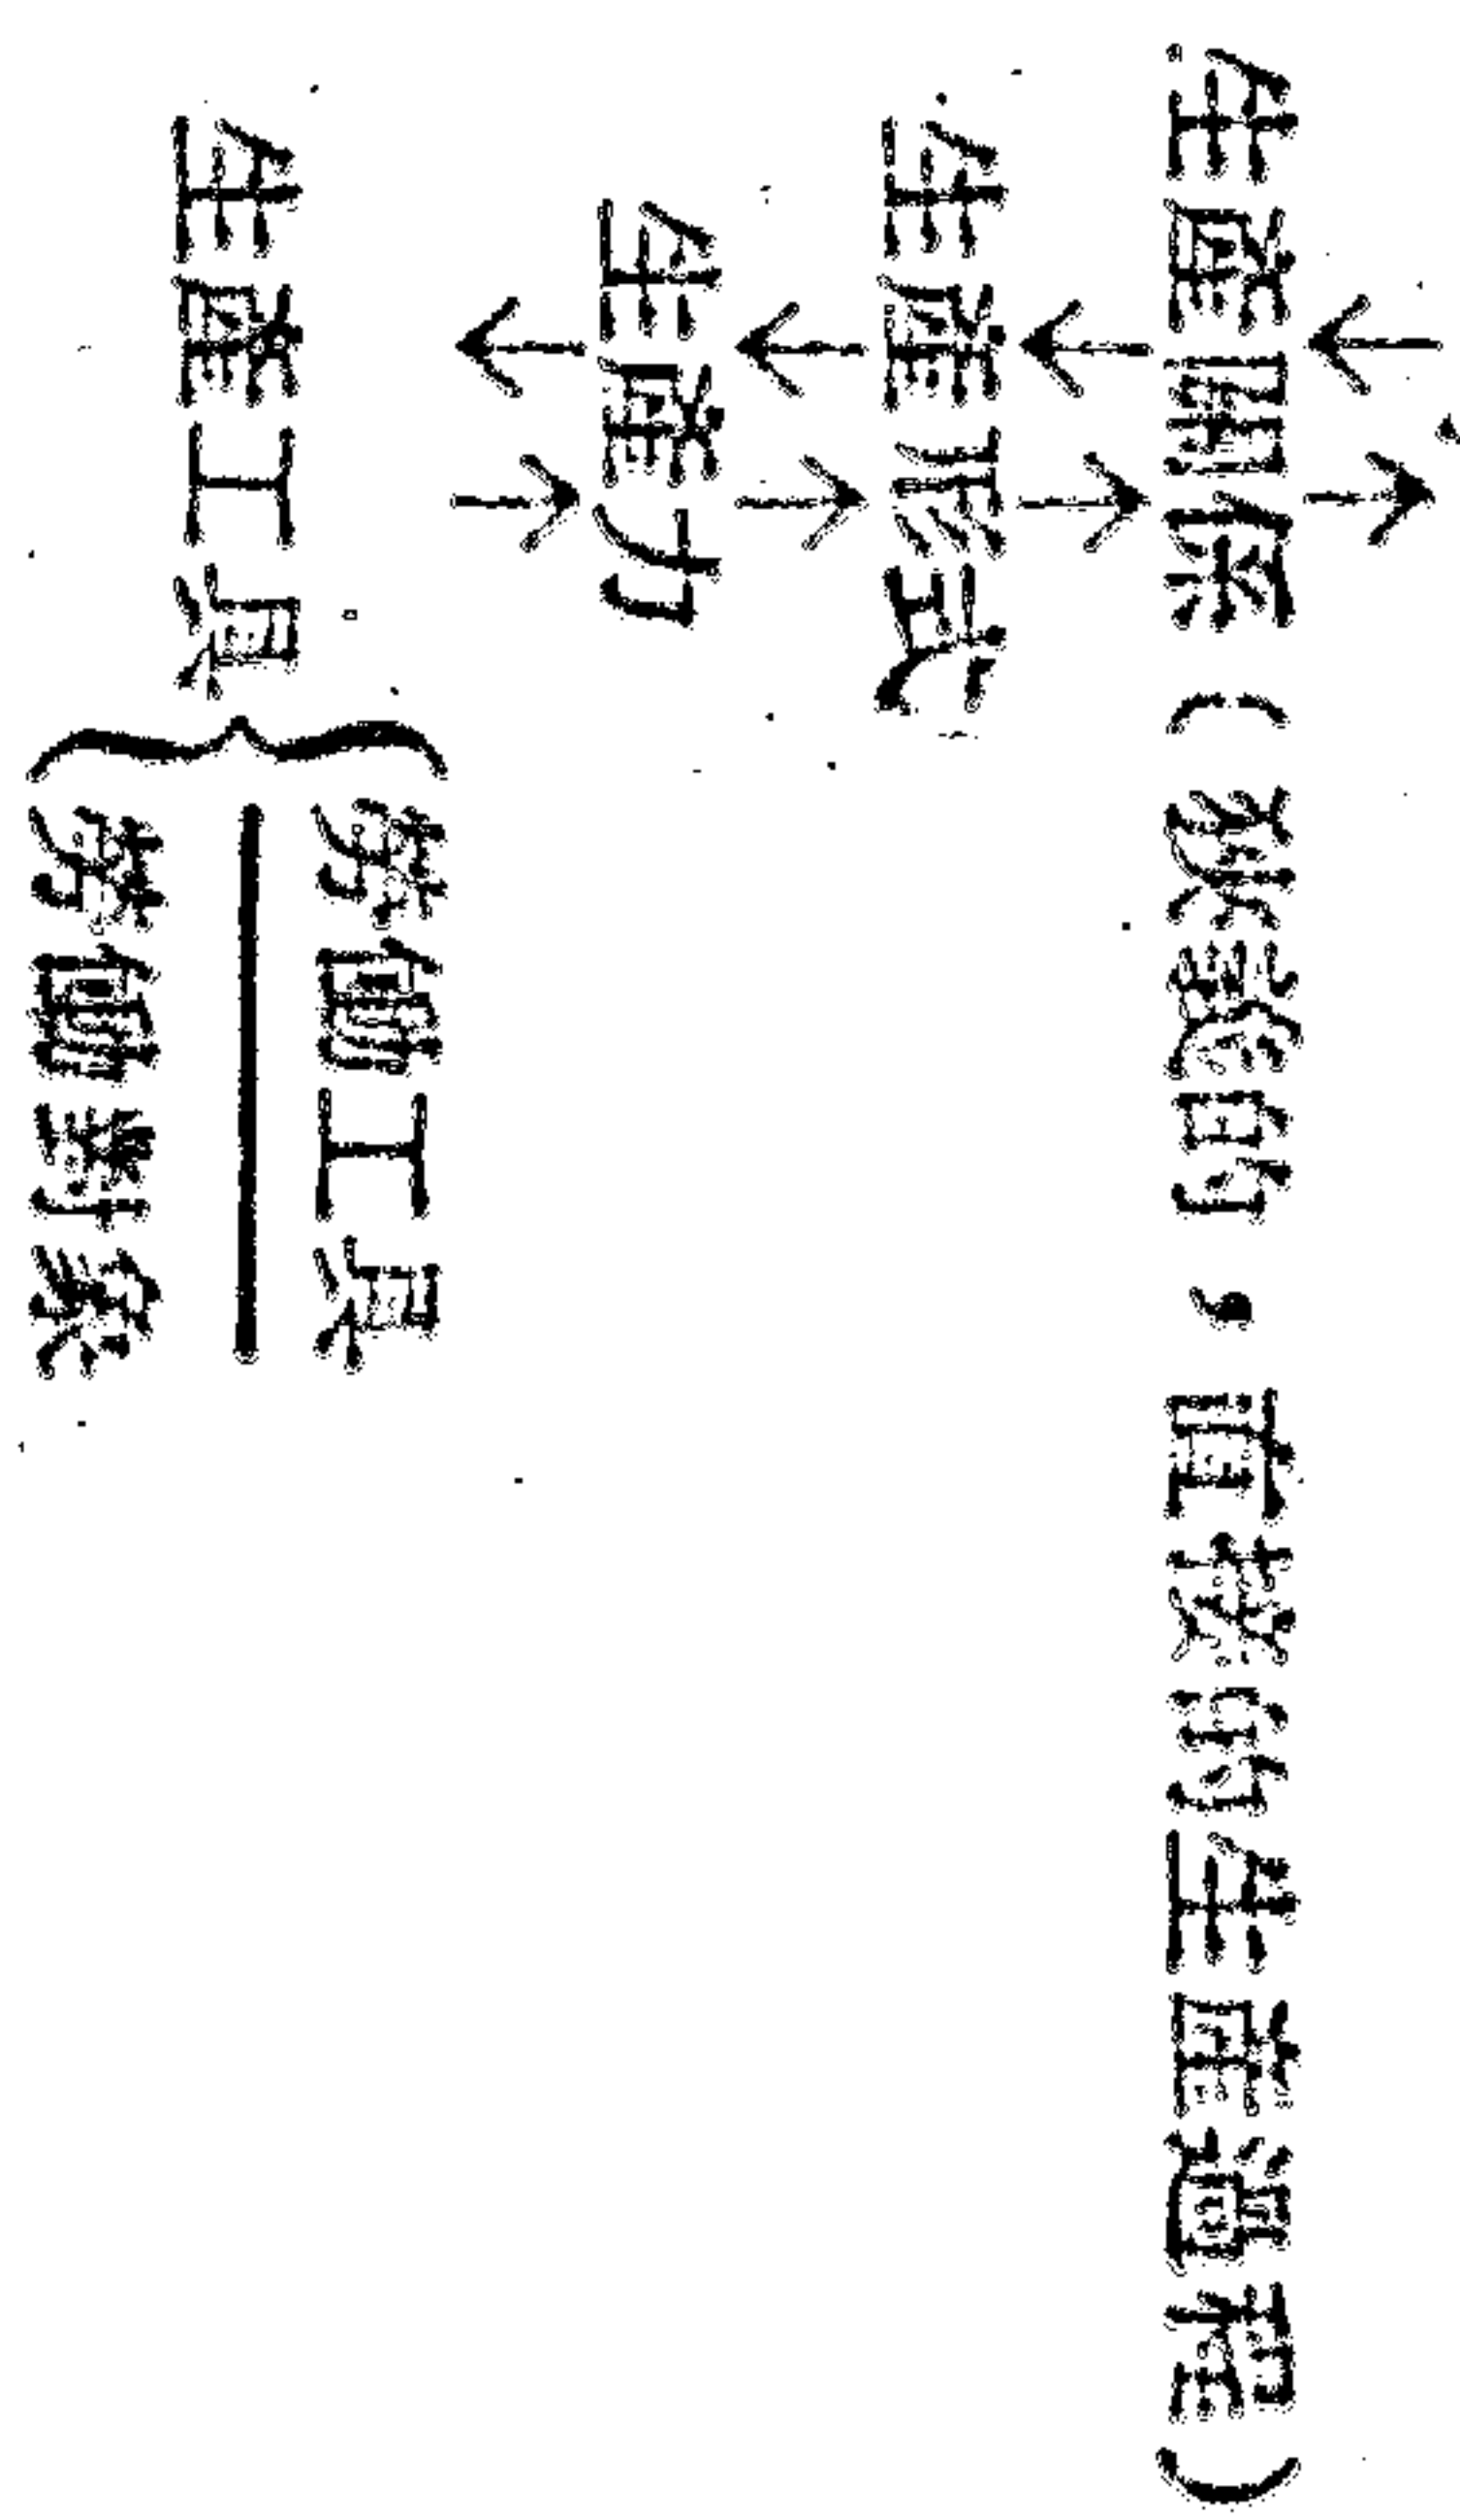 生產關係（狹義的，直接的生產過程）
生產形式
生產力
勞動工具
生產工具
勞動對象